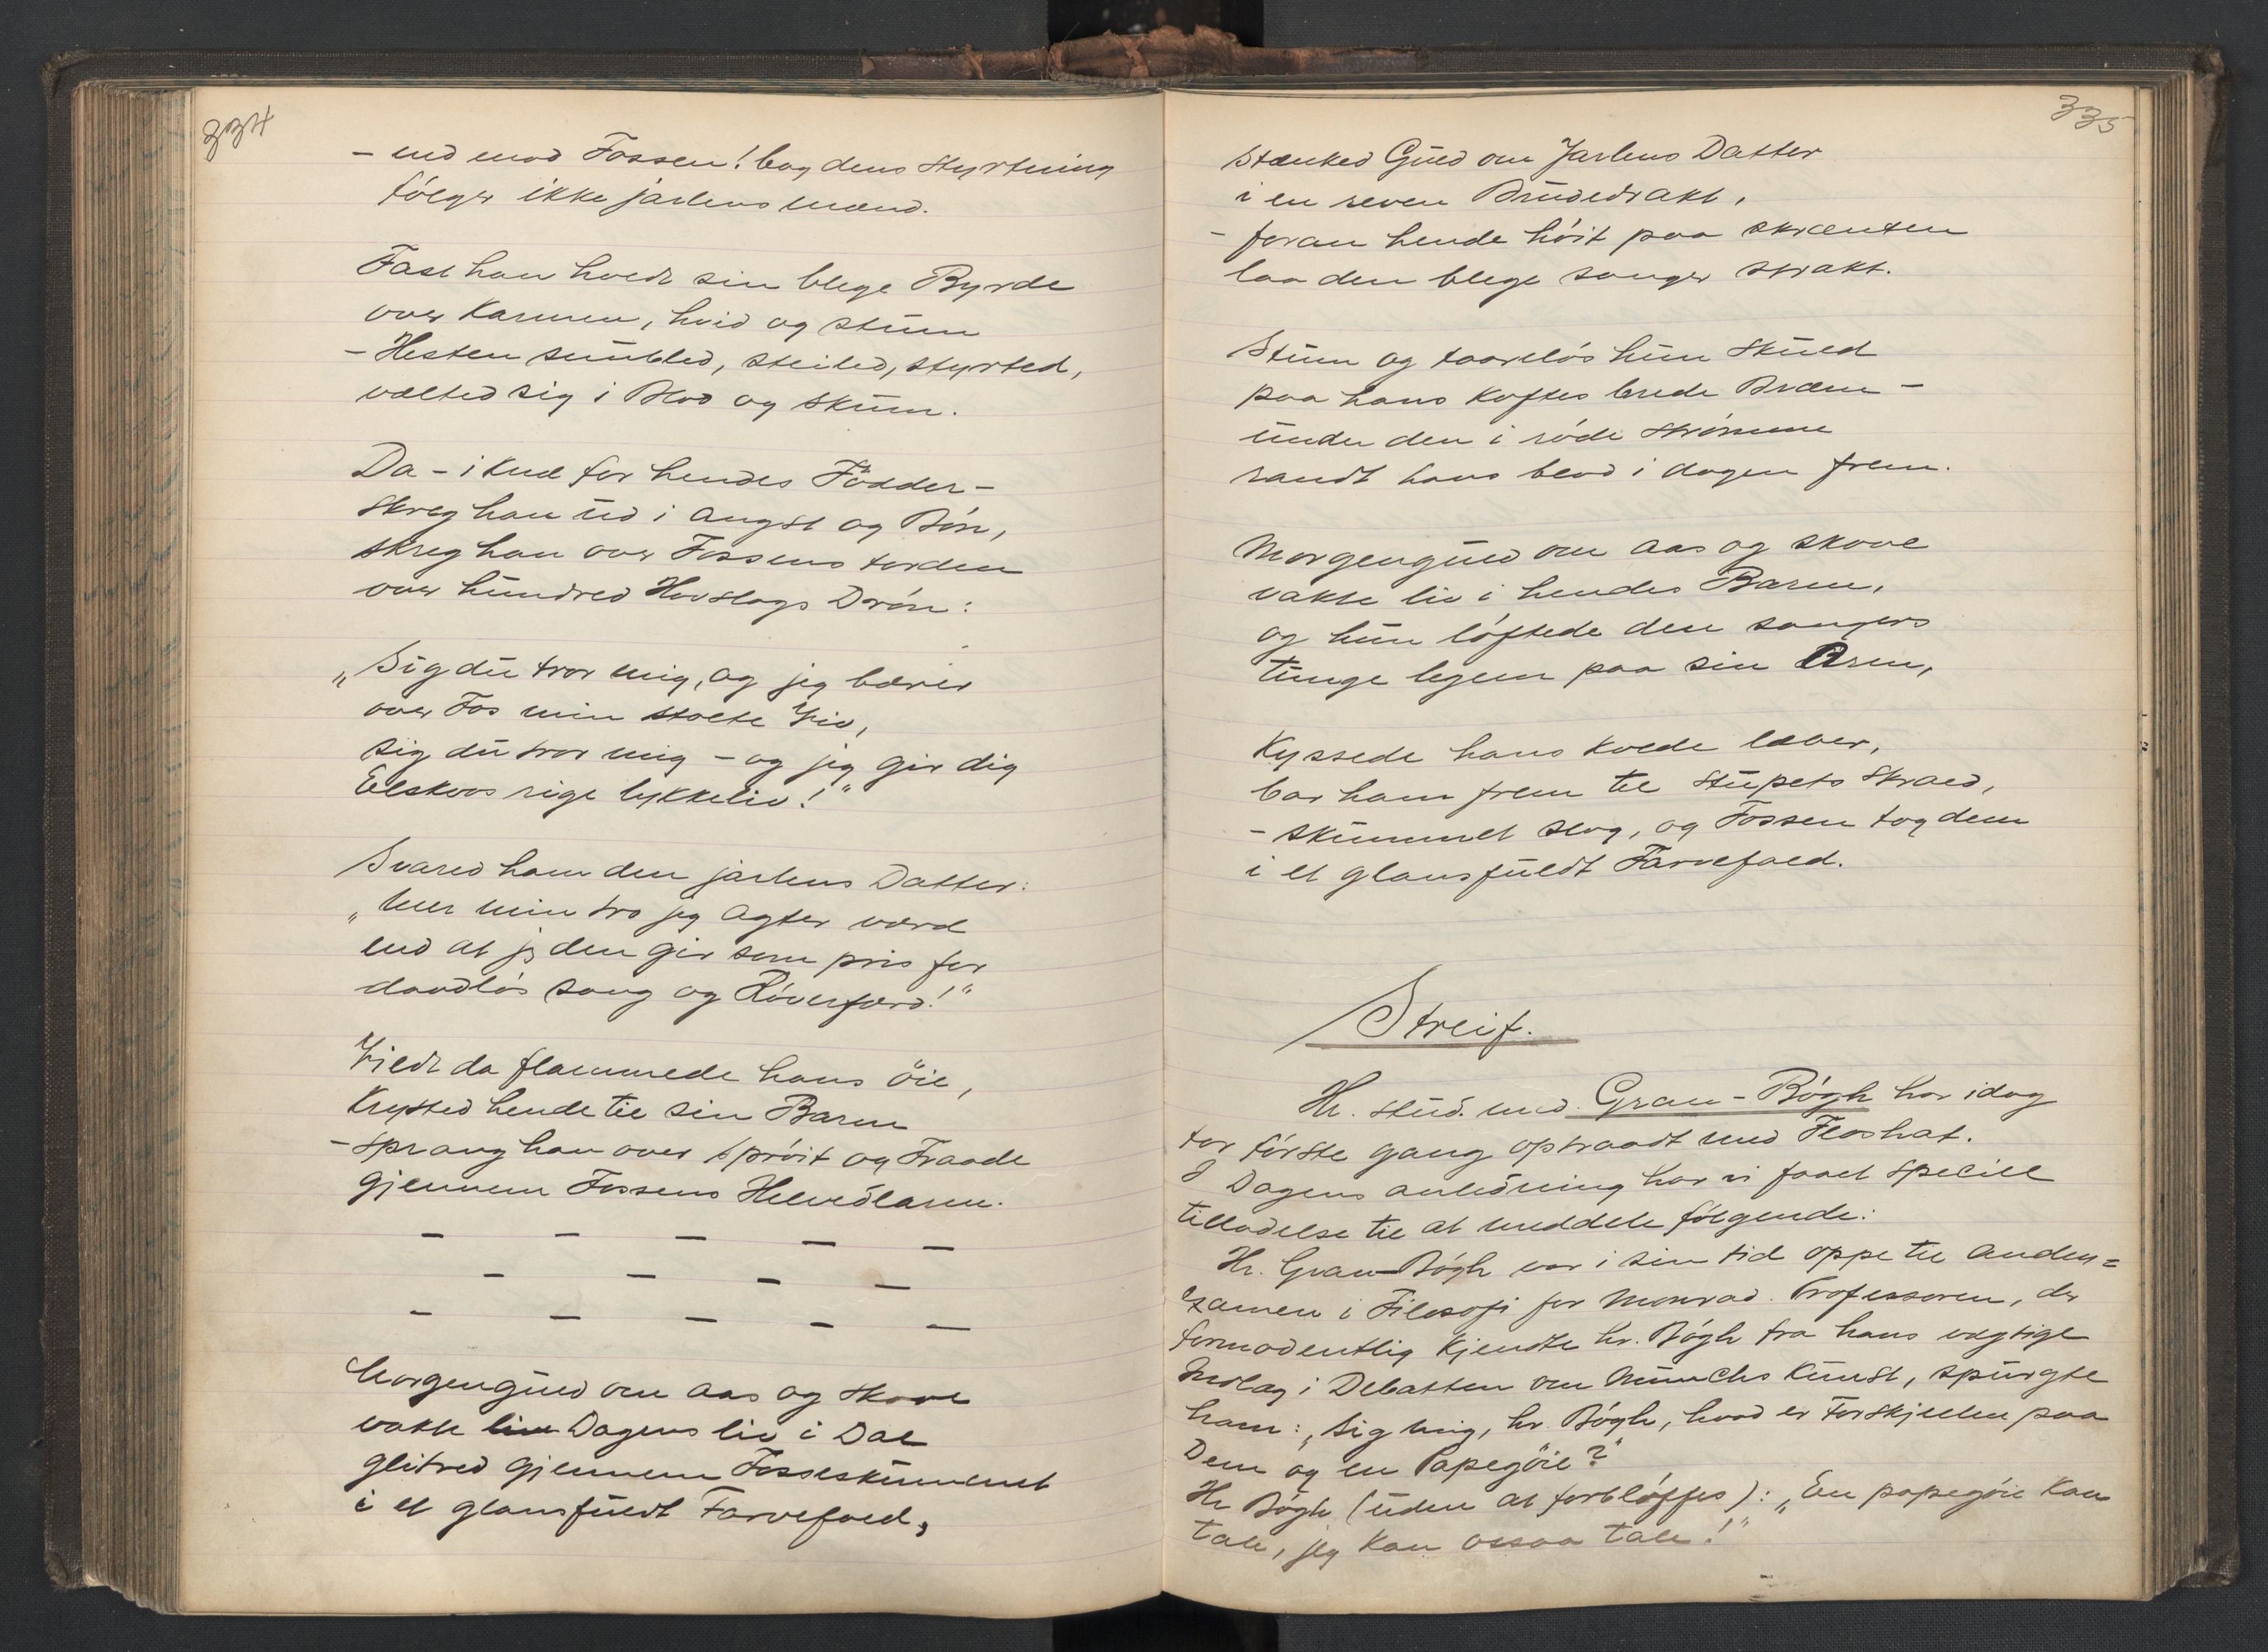 334
– ind mod Fossen! bag dens Styrtning
følger ikke jarlens mænd.
Fast han holdt sin blege Byrde
over Karmen, hvid og stum
– Hesten snubled, steiled, styrted,
vælted sig i Blod og Skum.
Da – i Knæ for hendes Fødder –
skreg han ud i Angst og Bøn,
skreg han over Fossens torden
over hundred Hovslags Drøn:
„Sig du tror mig, og jeg bærer
over Fos min stolte Viv,
sig du tror mig – og jeg gir dig
Elskovs rige lykkeliv!"
Svared ham den jarlens Datter:
„Mer min tro jeg agter værd
end at jeg den gir som pris for
daadløs sang og Røverfærd!"
Vildt da flammede hans øie,
Krysted hende til sin Barm
– sprang han over Sprøit og Fraade
gjennem Fossens Helvedlarm.
– – – – –
– – – –
– – – – –
Morgenguld om aas og Skove
vakte live Dagens liv i Dal
glitred gjennem Fosseskummet
i et glansfuldt Farvefald,
335
Stænked Guld om Jarlens Datter
i en reven Brudedrakt,
– foran hende høit paa skrænten
laa den blege sanger strakt.
Stum og taareløs hun skued
paa hans koftes brede Bræm –
under den i røde strømme
randt hans blod i dagen frem.
Morgenguld om aas og skove
vakte liv i hendes Barm,
og hun løftede den sangers
tunge legem paa sin Arm,
Kyssede hans kolde læber,
bar ham frem til stupets Skraad,
– skummet slog, og Fossen tog dem
i et glansfuldt Farvefald.
Streif.
Hr. stud. med. Gran-Bøgh har idag
for første gang optraadt med Floshat.
I Dagens anledning har vi faaet speciel
tilladelse til at meddele følgende:
Hr. Gran-Bøgh var i sin tid oppe til anden=
examen i Filosofi for Monrad. Professoren, der
formodentlig kjendte hr. Bøgh fra hans vægtige
Indlæg i Debatten om Munchs Kunst, spurgte
ham: „Sig mig, hr. Bøgh, hvad er Forskjellen paa
Dem og en Papegøie?"
Hr Bøgh (uden at forbløffes): „En papegøie kan
tale, jeg kan ossaa tale!"